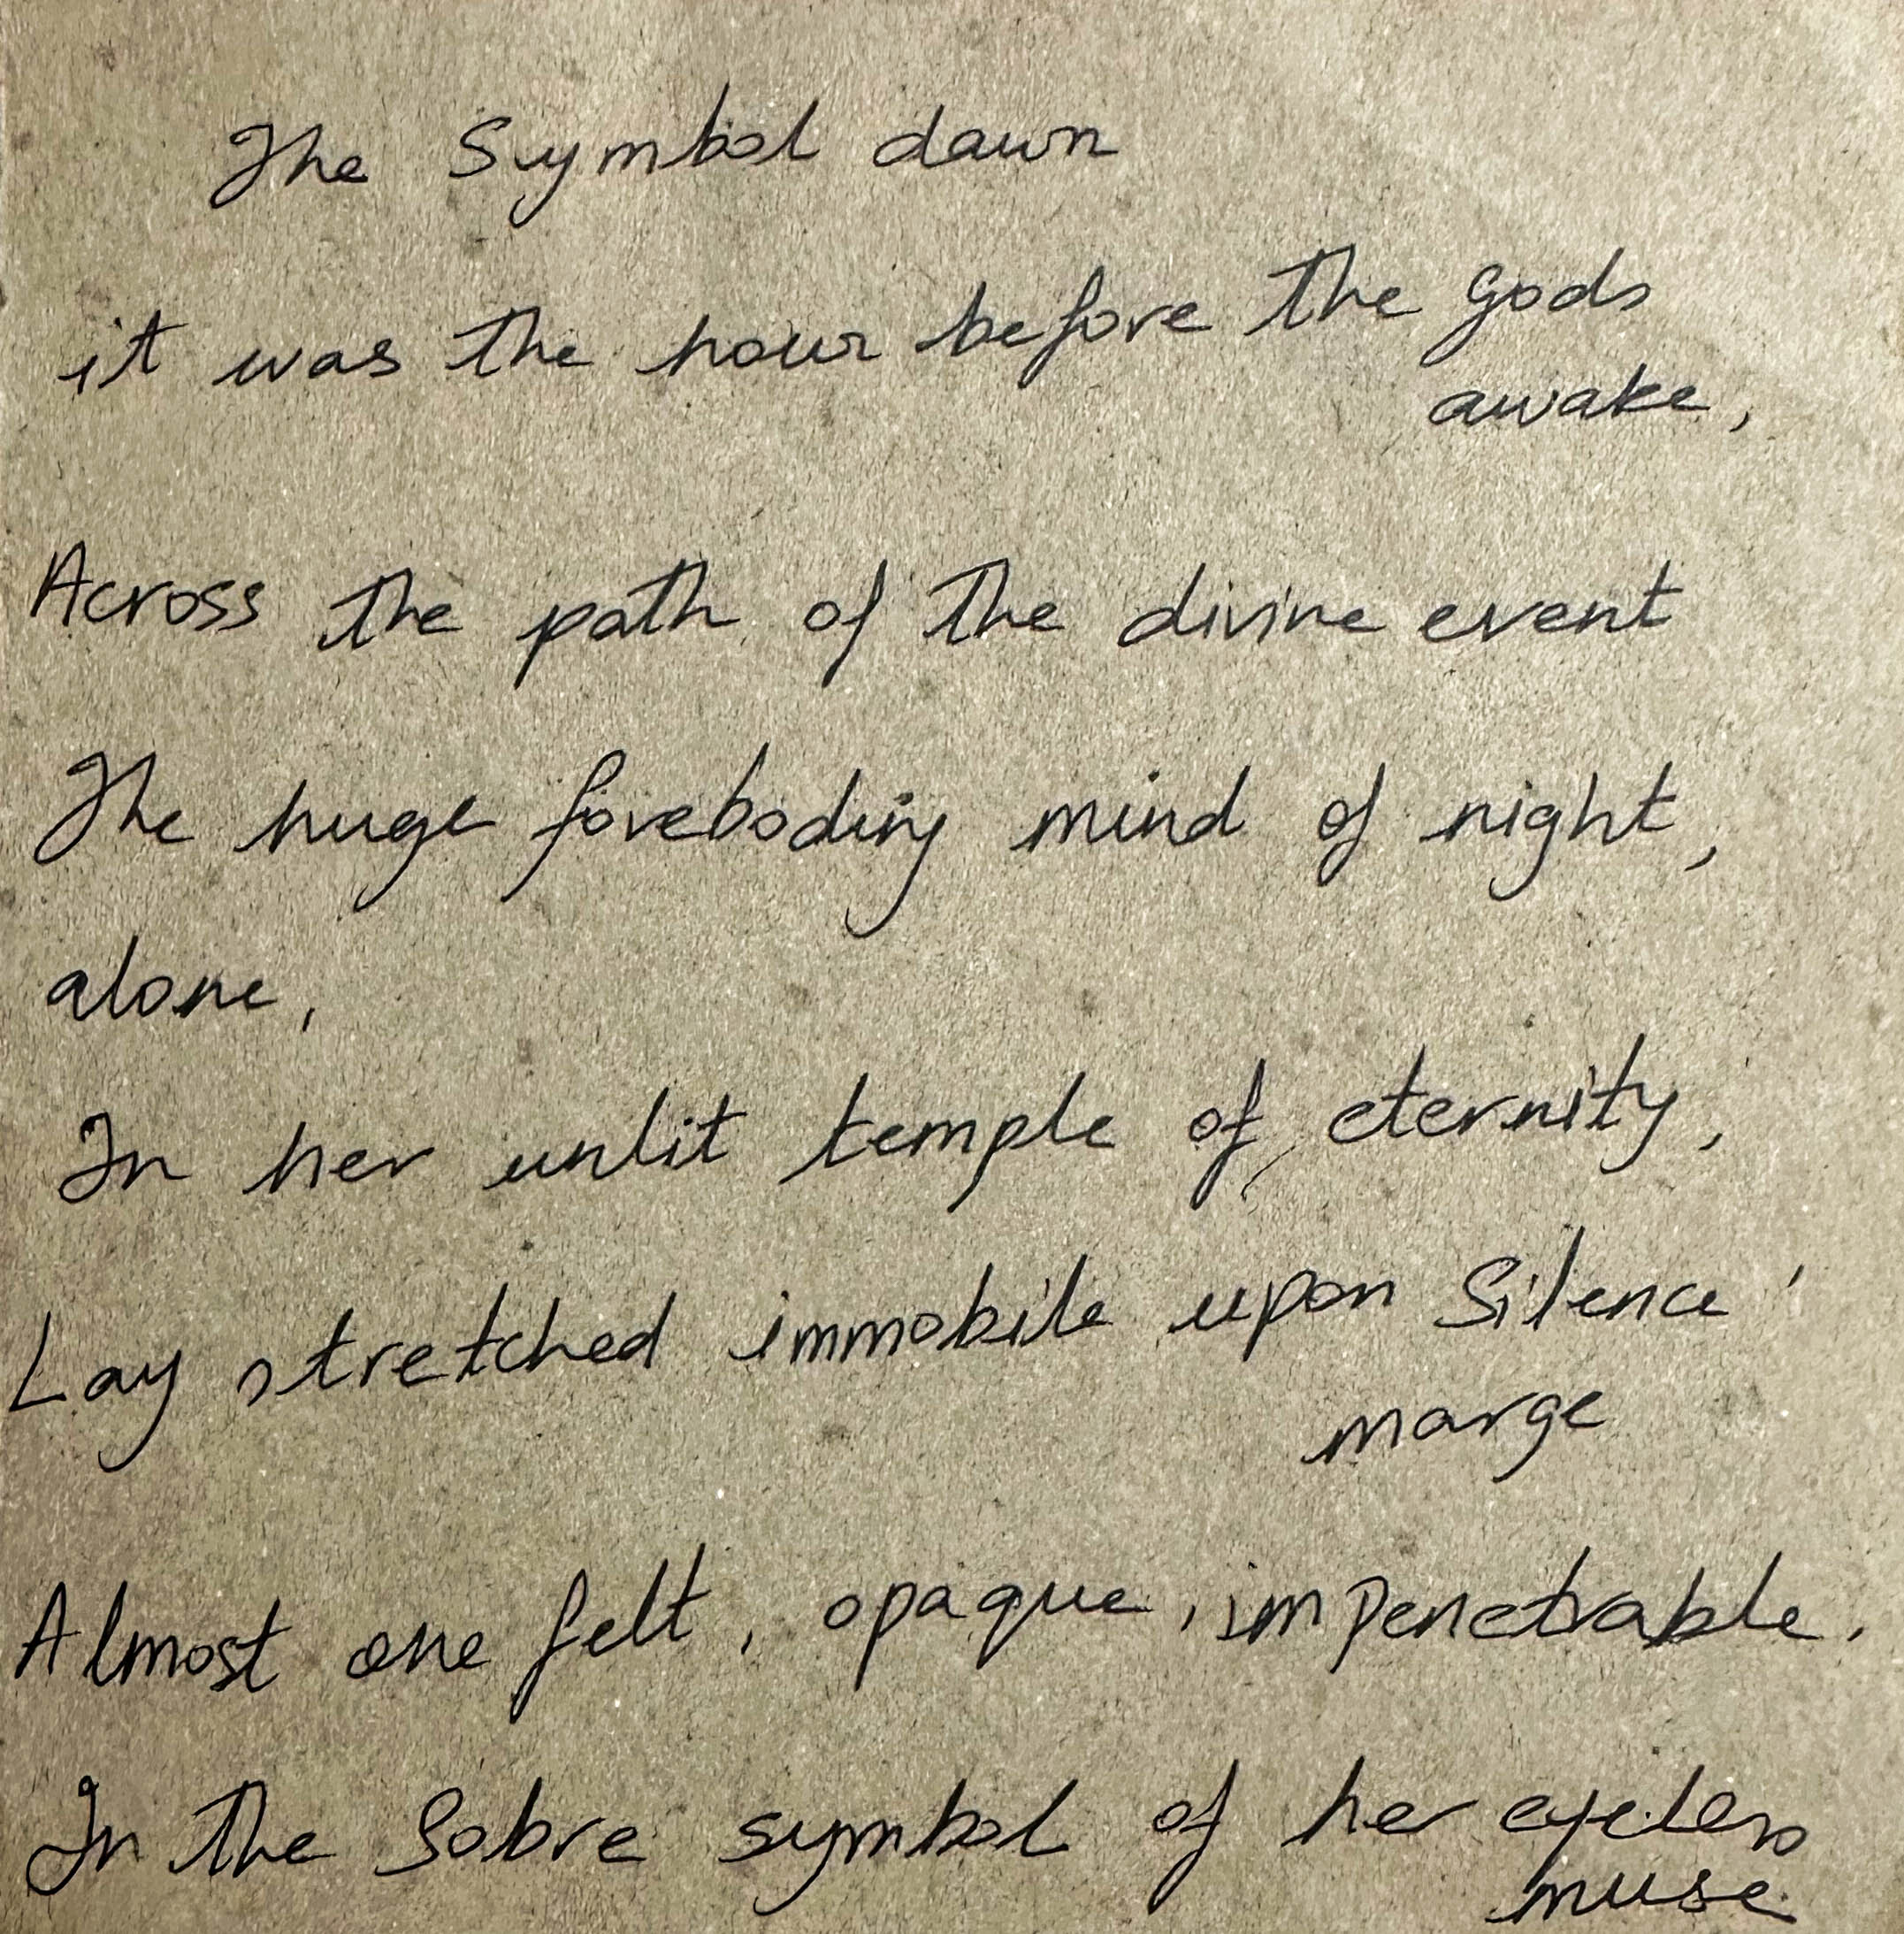 The Symbol dawn
it was the hour before the Gods
awake,
Across the path of the divine event
The huge foreboding mind of night,
alone,
In her unlit temple of eternity,
Lay stretched immobile upon Silence'
marge
Almost one felt, opaque, impenetrable.
In the Sobre symbol of her eyeless
muse